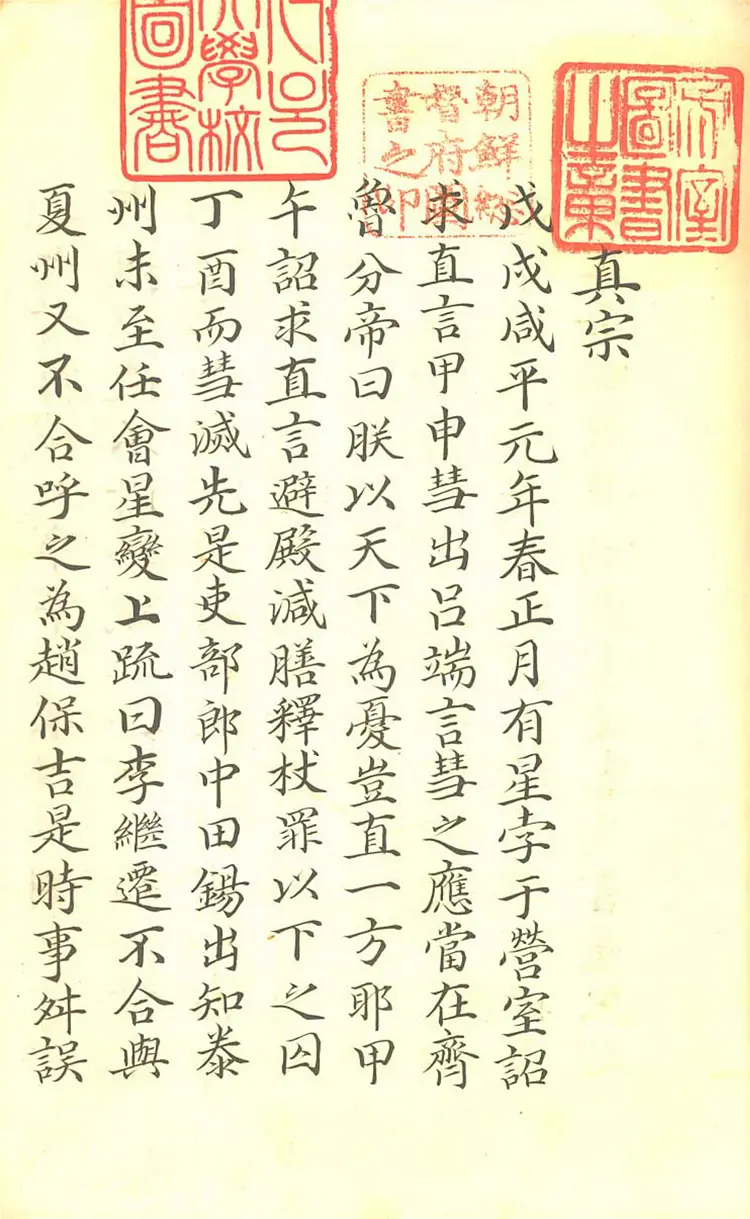 帝室
圖書
之章
朝鮮總
督府圖
書之印
서울
大學校
圖書
真宗
戊戌咸平元年春正月有星孛于營室詔
求直言甲申彗出呂端言彗之應當在齊
魯分帝曰朕以天下為憂豈直一方耶甲
午詔求直言避殿減膳釋杖罪以下之囚
丁酉而彗滅先是吏部郎中田錫出知泰
州未至任會星變上疏曰李繼遷不合與
夏州又不合呼之為趙保吉是時事舛誤